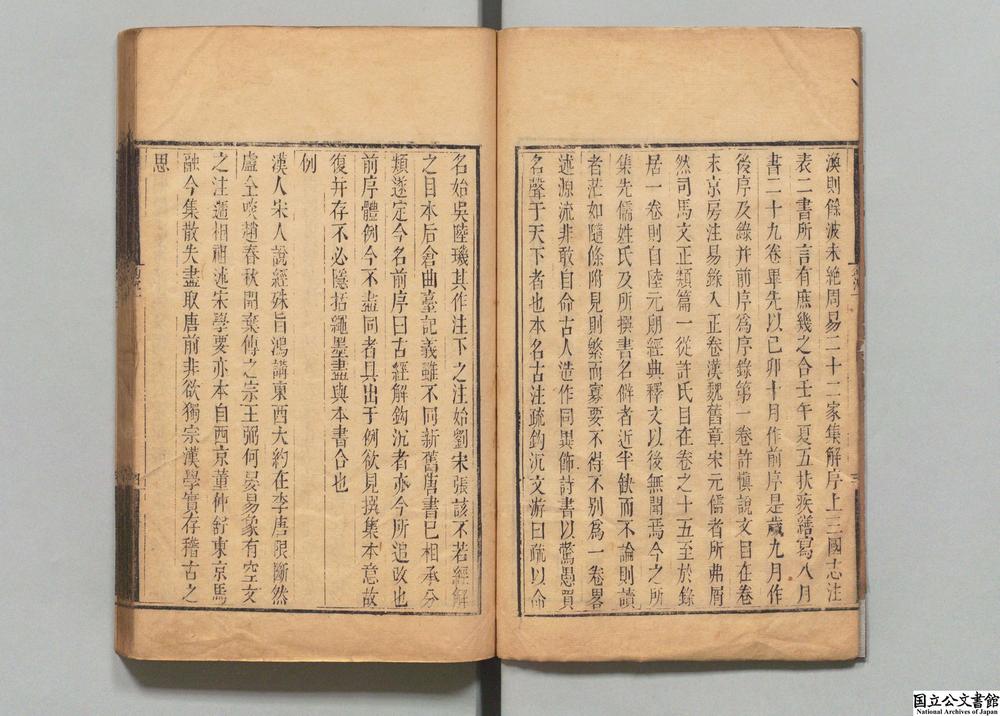 渙則餘波未絕周易二十二家集解序上三國志注
表二書所言有庶幾之合壬午夏五扶疾繕寫八月
書二十九卷畢先以己卯十月作前序是歲九月作
後序及錄并前序爲序錄第一卷許愼說文目在卷
末京房注易錄入正卷漢魏舊章宋元儒者所弗屑
然司馬文正類篇一從許氏目在卷之十五至於錄
居一卷則自陸元朗經典釋文以後無聞焉今之所
集先儒姓氏及所撰書名僻者近半缺而不論則讀
者茫如隨條附見則繁而寡要不得不別爲一卷畧
述源流非敢自命古人造作同異飾詩書以驚愚買
名聲于天下者也本名古注疏鈎沉文游曰疏以命
名始吳陸璣其作注下之注始劉宋張該不若經解
之目本后倉曲臺記義雖不同新舊唐書已相承分
類遂定今名前序曰古經解鈎沉者亦今所追改也
前序體例今不盡同者具出于例欲見撰集本意故
復并存不必隱括繩墨盡與本書合也
例
漢人宋人說經殊旨鴻講東西大約在李唐限斷然
盧仝啖趙春秋開棄傳之宗王弼何晏易象有空文
之注遞相祖述宋學要亦本自西京董仲舒東京馬
融今集散失盡取唐前非欲獨宗漢學實存稽古之
思
三
四
国立公文書館
National Archives of Japan